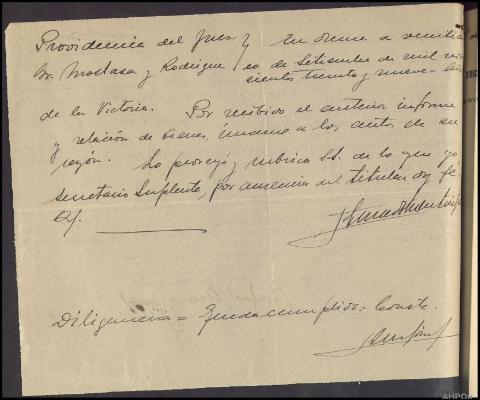 Providencia del Juez } En Orense a veinticin
Sr. Mostaza y Rodrigue } co de Setiembre de mil nov
cientos treinta y nueve. Año
de la Victoria. Por recibido el anterior informe
y relación de bienes, únanse a los autos de su
razón. Lo proveyó y rubrica SS. de lo que yo
Secretario Suplente, por ausencia del titular doy fé
Diligencia = Queda cumplido: Conste.
AHPOR